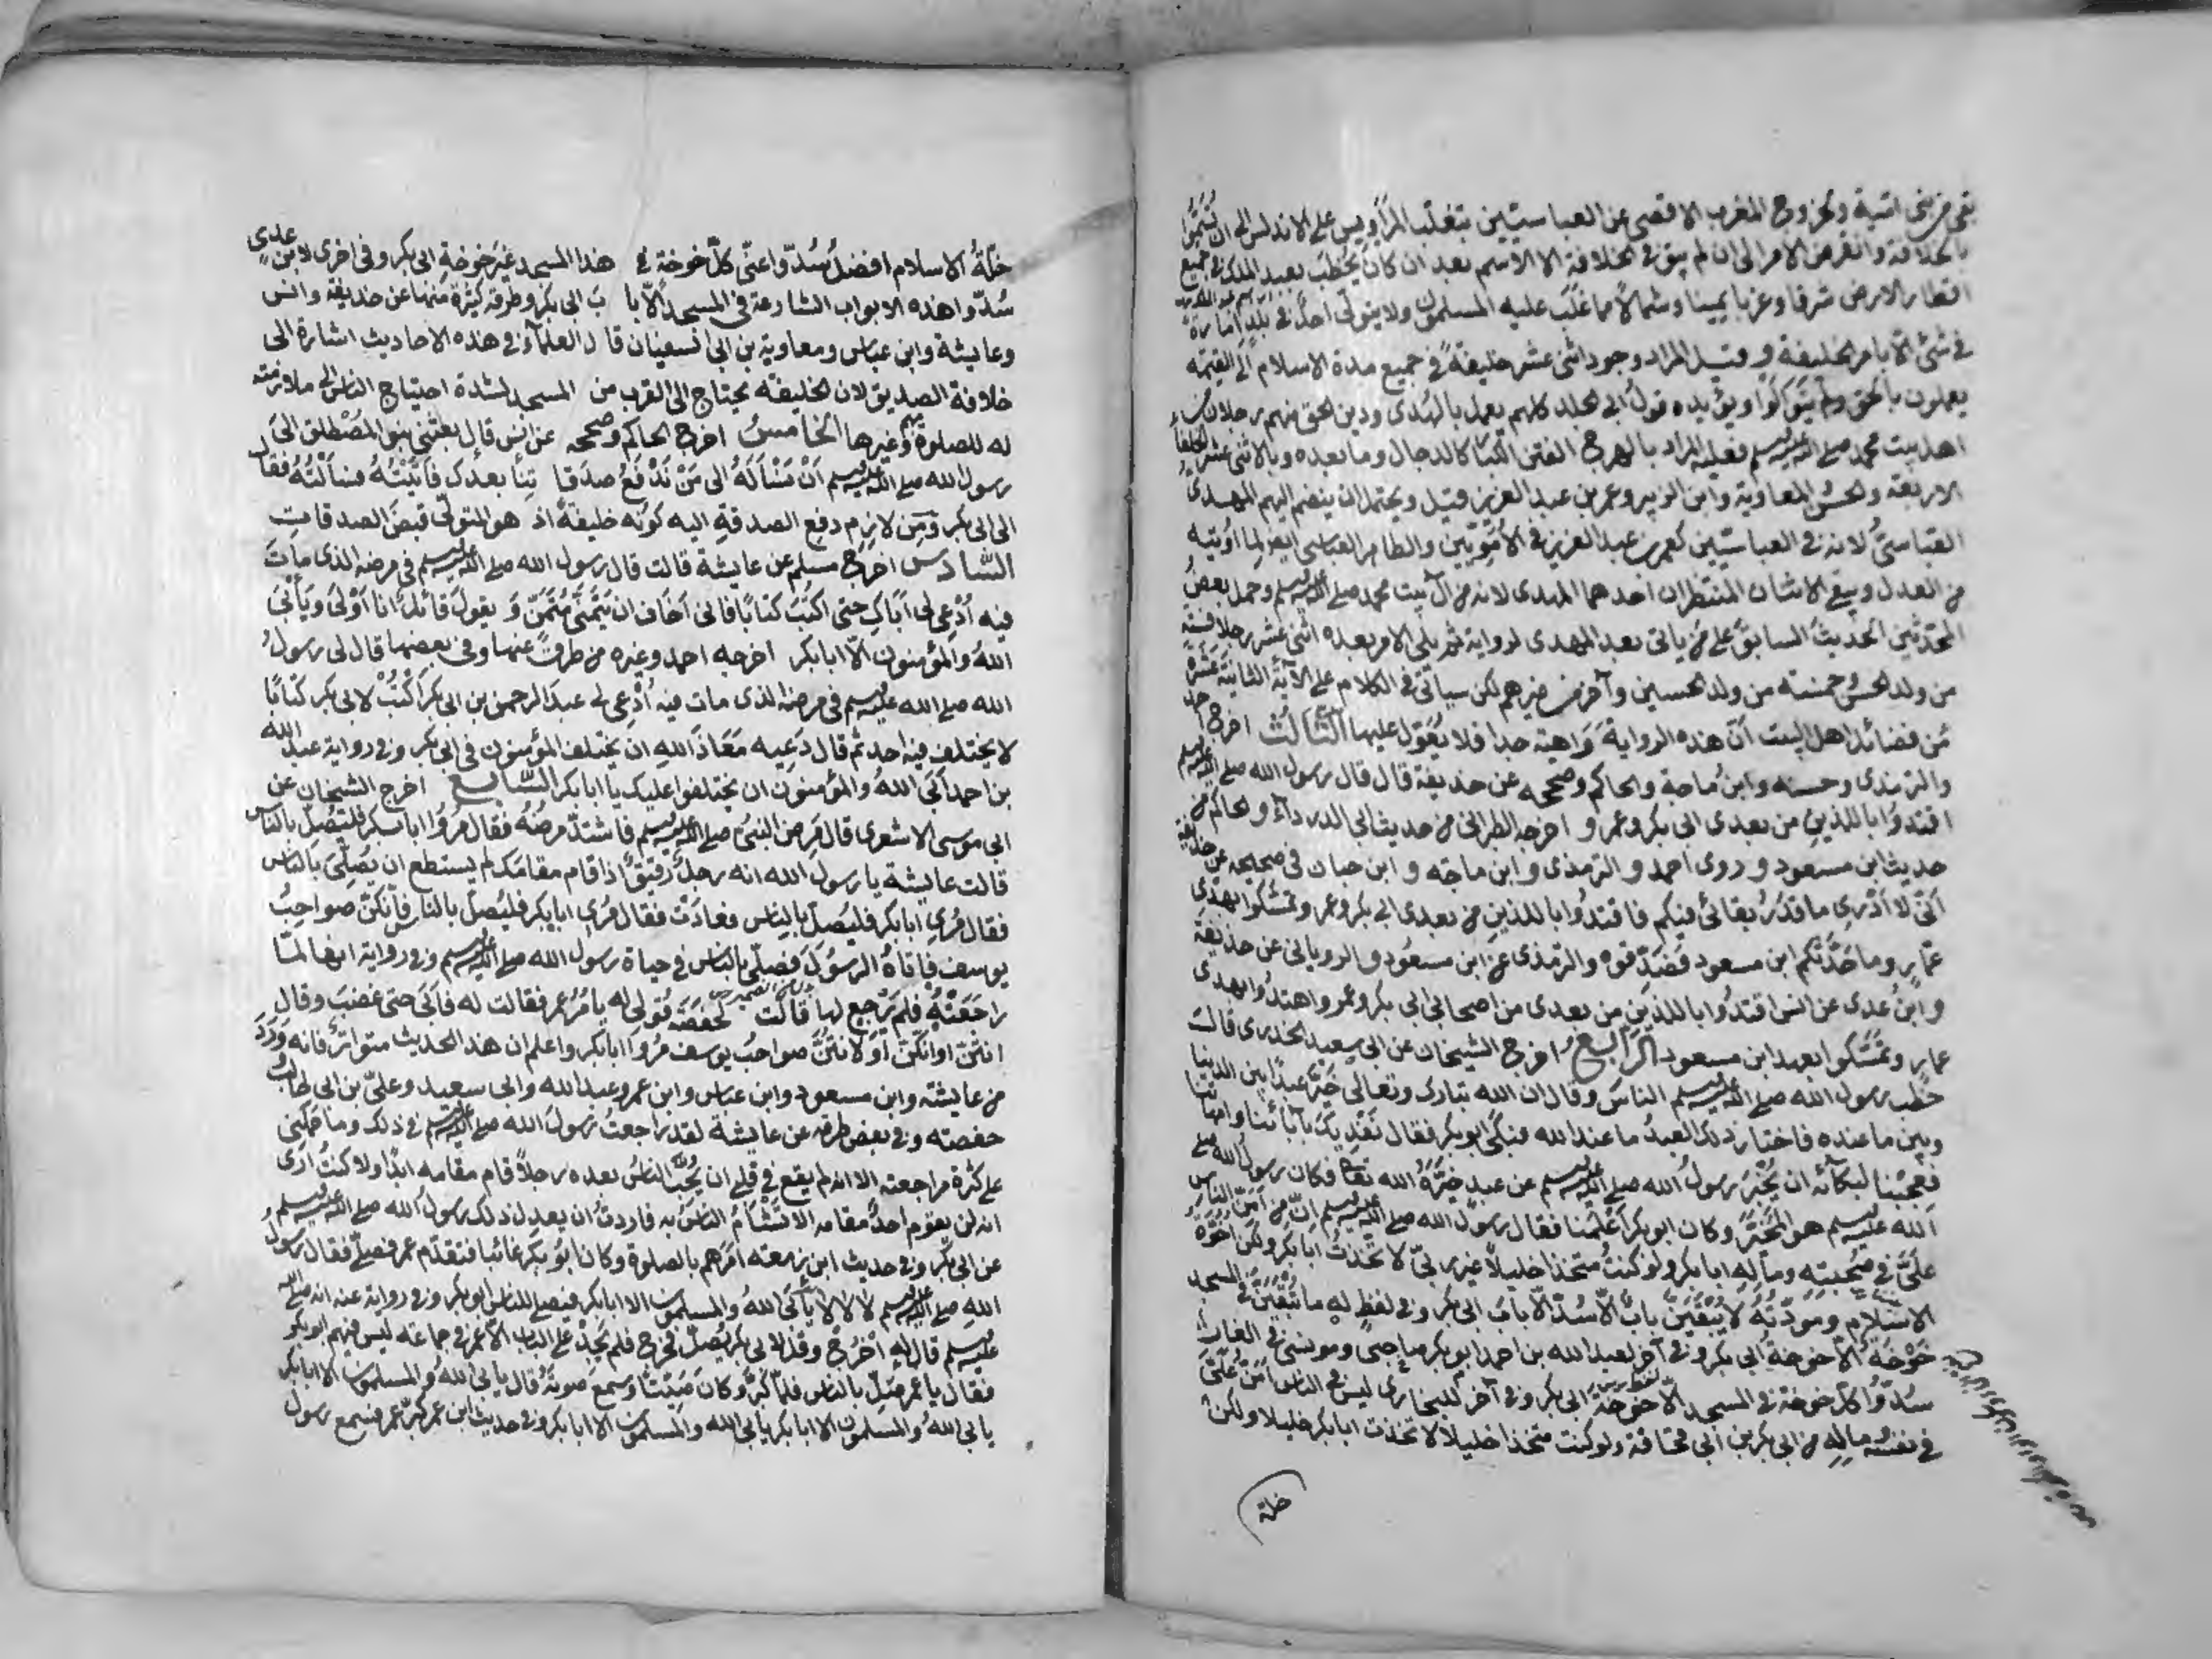 بقى من بنى امية ولخروج المغرب الاقصى عن العباسيين بتغلب المروانيين على الاندلس الى ان تسموا
بالخلافة وانقرض الامر الى ان لم يبق فى الخلافة الا الاسم بعد ان كان يخطب لعبد الملك فى جميع
اقطار الارض شرقا وغربا يمينا وشمالا مما غلب عليه المسلمون ولا يتولى احد فى بلد امارة
فى شئ الا بامر الخليفة وقيل المراد وجود اثنى عشر خليفة فى جميع مدة الاسلام الى القيمة
يعملون بالحق وان لم يتوالوا ويؤيده قول ابى الجلد كلهم يعمل بالهدى ودين الحق منهم رجلان من
اهل بيت محمد صلى الله عليه وسلم فعليه المراد بالهرج الفتن الكبار كالدجال وما بعده وبالاثنى عشر الخلفاء
الاربعة والحسن والمعاوية وابن الزبير وعمر بن عبد العزيز قيل ويحتمل ان ينضم اليهم المهدى
العباسى لانه فى العباسيين كعمر بن عبد العزيز فى الامويين والطاهر العباسى ايضا لما اوتيه
من العدل ويبقى الاثنان المنتظران احدهما المهدى لانه من آل بيت محمد صلى الله عليه وسلم وحمل بعض
المحدثين الحديث السابق على من ياتى بعد المهدى لرواية ثم يلى الامر بعده اثنى عشر رجلا ستة
من ولد الحسن وخمسة من ولد الحسين وآخر من غيرهم لكن سياتى فى الكلام على الآية الثانية عشرة
من فضائل اهل البيت ان هذه الرواية واهية جدا فلا يعول عليها الثالث اخرج احمد
والترمذى وحسنه وابن ماجة والحاكم وصححه عن حذيفة قال قال رسول الله صلى الله عليه وسلم
اقتدوا باللذين من بعدى ابى بكر وعمر و اخرجه الطبرانى من حديث ابى الدرداء والحاكم من
حديث ابن مسعود و روى احمد و الترمذى و ابن ماجه و ابن حبان فى صحيحه عن حذيفة
انى لا ادرى ما قدر بقائى فيكم فاقتدوا باللذين من بعدى ابى بكر وعمر وتمسكوا بهدى
عمار وما حدثكم ابن مسعود فصدقوه والترمذى عن ابن مسعود والرويانى عن حذيفة
وابن عدى عن انس اقتدوا باللذين من بعدى من اصحابى ابى بكر وعمر واهتدوا بهدى
عمار وتمسكوا بعهد ابن مسعود الرابع اخرج الشيخان عن ابى سعيد الخدرى قال
خطب رسول الله صلى الله عليه وسلم الناس وقال ان الله تبارك وتعالى خير عبدا بين الدنيا
وبين ما عنده فاختار ذلك العبد ما عند الله فبكى ابو بكر فقال نفديك بآبائنا وامهاتنا
فعجبنا لبكائه ان يخبر رسول الله صلى الله عليه وسلم عن عبد خيره الله تعا فكان رسول الله صلى
الله عليه وسلم هو المخير وكان ابو بكر اعلمنا فقال رسول الله صلى الله عليه وسلم ان من امن الناس
على فى صحبته وماله ابا بكر ولو كنت متخذا خليلا غير ربى لاتخذت ابا بكر ولكن اخوة
الاسلام ومودته لا يبقين باب الا سد الا باب ابى بكر وفى لفظ له ما تبقين فى المسجد
خوخة الا خوخة ابى بكر وفى آخر لعبد الله بن احمد ابو بكر صاحبى ومونسى فى الغار
سدوا كل خوخة فى المسجد الا خوخة ابى بكر وفى آخر للبخارى ليس فى الناس امن على
فى نفسه وماله من ابى بكر بن ابى قحافة ولو كنت متخذا خليلا لاتخذت ابا بكر خليلا ولكن
خلة
خلة الاسلام افضل سدوا عنى كل خوخة فى هذا المسجد غير خوخة ابى بكر وفى اخرى لابن عدى
سدوا هذه الابواب الشارعة فى المسجد الا باب ابى بكر وطرقه كثيرة منها عن حذيفة وانس
وعايشة وابن عباس ومعاوية بن ابى سفيان قال العلماء فى هذه الاحاديث اشارة الى
خلافة الصديق لان الخليفة يحتاج الى القرب من المسجد لشدة احتياج الناس الى ملازمته
له للصلوة بهم وغيرها الخامس اخرج الحاكم وصححه عن انس قال بعثنى بنو المصطلق الى
رسول الله صلى الله عليه وسلم ان سأله الى من ندفع صدقاتنا بعدك فاتيته فسألته فقال
الى ابى بكر ومن لازم دفع الصدقة اليه كونه خليفة اذ هو المتولى قبض الصدقات
السادس اخرج مسلم عن عايشة قالت قال رسول الله صلى الله عليه وسلم فى مرضه الذى مات
فيه ادعى لى اباك حتى اكتب كتابا فانى اخاف ان يتمنى متمن و يقول قائل انا اولى ويأبى
الله والمؤمنون الا ابا بكر اخرجه احمد وغيره من طرق عنها وفى بعضها قال لى رسول
الله صلى الله عليه وسلم فى مرضه الذى مات فيه ادعى لى عبد الرحمن بن ابى بكر اكتب لابى بكر كتابا
لا يختلف فيه احد ثم قال دعيه معاذ الله ان يختلف المؤمنون فى ابى بكر وفى رواية عبد الله
بن احمد ابى الله والمؤمنون ان يختلفوا عليك يا ابا بكر السابع اخرج الشيخان عن
ابى موسى الاشعرى قال مرض النبى صلى الله عليه وسلم فاشتد مرضه فقال مروا ابا بكر فليصل بالناس
قالت عايشة يا رسول الله انه رجل رقيق اذا قام مقامك لم يستطع ان يصلى بالناس
فقال مرى ابا بكر فليصل بالناس فعادت فقال مرى ابا بكر فليصل بالناس فانكن صواحب
يوسف فاتاه الرسول فصلى بالناس فى حياة رسول الله صلى الله عليه وسلم وفى رواية انها لما
راجعته فلم يرجع لها قالت لحفصة قولى له يامر عمر فقالت له فابى حتى غضب وقال
انتن او انكن او لانتن صواحب يوسف مروا ابا بكر واعلم ان هذا الحديث متواتر فانه ورد
من عايشة وابن مسعود وابن عباس وابن عمر وعبد الله وابى سعيد وعلى بن ابى طالب
حفصة وفى بعض طرقه عن عايشة لقد راجعت رسول الله صلى الله عليه وسلم فى ذلك وما حملنى
على كثرة مراجعته الا انه لم يقع فى قلبى ان يحب الناس بعده رجلا قام مقامه ابدا ولا كنت ارى
انه لن يقوم احد مقامه الا تشأم الناس به فاردت ان يعدل ذلك رسول الله صلى الله عليه وسلم
عن ابى بكر وفى حديث ابن زمعة امرهم بالصلوة وكان ابو بكر غائبا فتقدم عمر فصلى فقال رسول
الله صلى الله عليه وسلم لا لا لا يأبى الله والمسلمون الا ابا بكر فيصلى للناس ابو بكر وفى رواية عنه انه صلى الله
عليه وسلم قال له اخرج وقل لابى بكر يصل فخرج فلم يجد على الباب الا عمر فى جماعة ليس فيهم ابو بكر
فقال يا عمر صل بالناس فلما كبر وكان صيتا وسمع صوته قال يابى الله والمسلمون الا ابا بكر
يابى الله والمسلمون الا ابا بكر يابى الله والمسلمون الا ابا بكر وفى حديث ابن عمر كبر عمر فسمع رسول